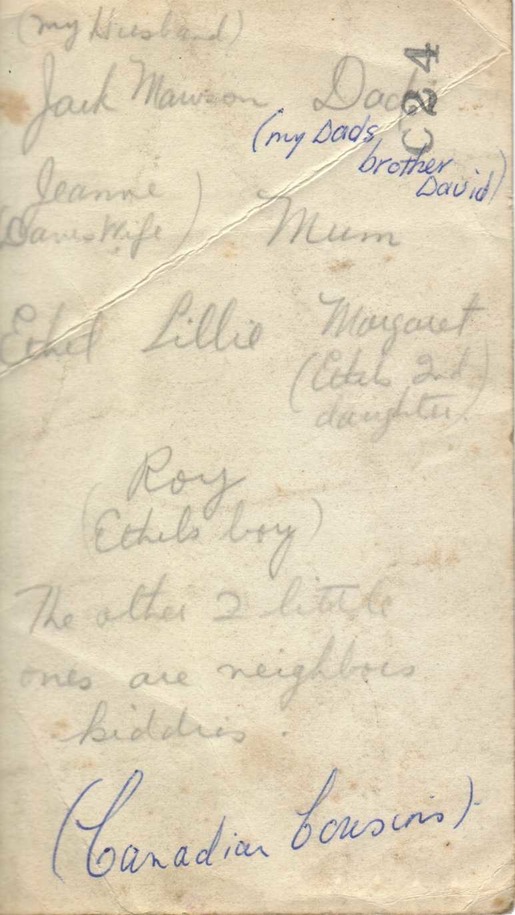 (my Husband)
Jack Mawson Dad
C24
(my Dads
brother
David)
Jeanne
(Daves Wife) Mum
Ethel Lillie Margaret
(Ethels 2nd
daughter)
Roy
(Ethels boy)
The other 2 little
ones are neighbors
kiddies.
(Canadian Cousins)